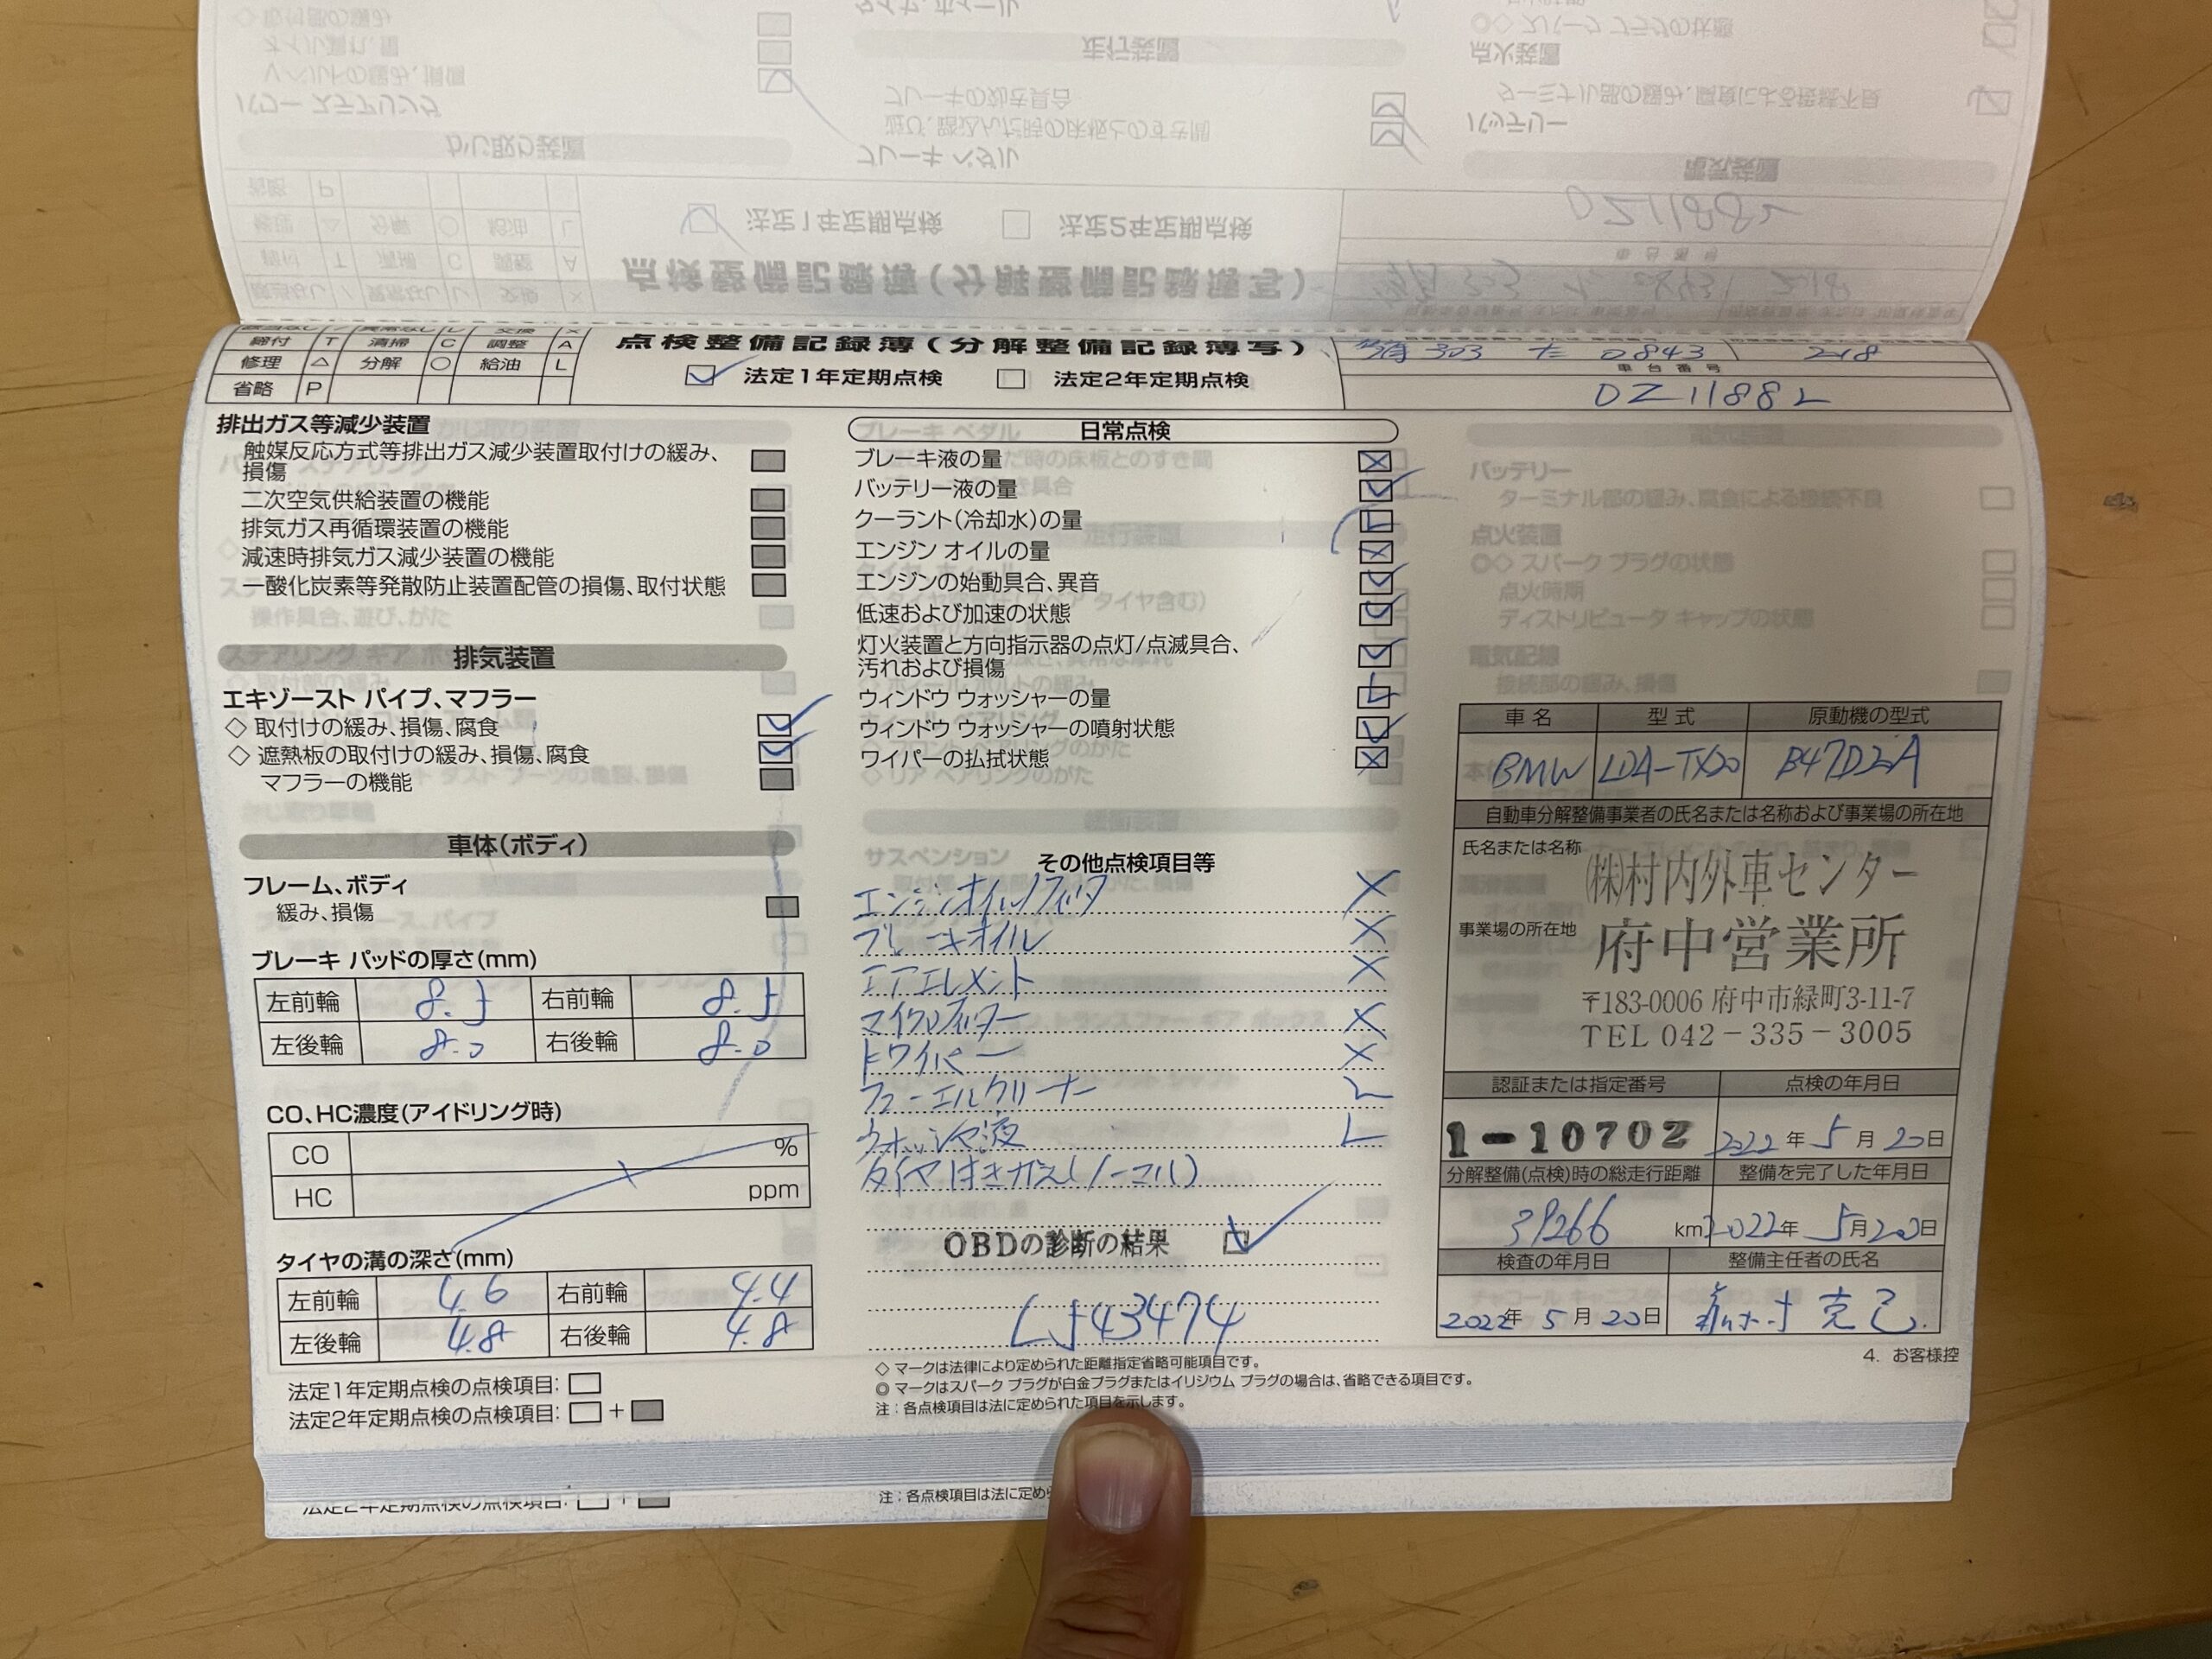 締付 T 清掃 C 調整 A
修理 △ 分解 ○ 給油 L
省略 P
点検整備記録簿(分解整備記録簿写)
法定1年定期点検 法定2年定期点検
303 0843 218
車台番号
0Z11882
排出ガス等減少装置
触媒反応方式等排出ガス減少装置取付けの緩み、
損傷
二次空気供給装置の機能
排気ガス再循環装置の機能
減速時排気ガス減少装置の機能
一酸化炭素等発散防止装置配管の損傷、取付状態
排気装置
エキゾースト パイプ、マフラー
◇ 取付けの緩み、損傷、腐食
◇ 遮熱板の取付けの緩み、損傷、腐食
マフラーの機能
車体(ボディ)
フレーム、ボディ
緩み、損傷
ブレーキ パッドの厚さ(mm)
左前輪 8.5 右前輪 8.5
左後輪 8.0 右後輪 8.0
CO、HC濃度(アイドリング時)
CO %
HC ppm
タイヤの溝の深さ(mm)
左前輪 4.6 右前輪 4.4
左後輪 4.8 右後輪 4.8
法定1年定期点検の点検項目:
法定2年定期点検の点検項目: +
日常点検
ブレーキ液の量
バッテリー液の量
クーラント(冷却水)の量
エンジン オイルの量
エンジンの始動具合、異音
低速および加速の状態
灯火装置と方向指示器の点灯/点滅具合、
汚れおよび損傷
ウィンドウ ウォッシャーの量
ウィンドウ ウォッシャーの噴射状態
ワイパーの払拭状態
その他点検項目等
エンジンオイル/フィルタ ×
ブレーキオイル ×
エアエレメント ×
マイクロフィルター ×
Fワイパー ×
フューエルクリーナー L
ウォッシャ液 L
タイヤはきかえ(ノーマル)
OBDの診断の結果
LJ43474
◇ マークは法律により定められた距離指定省略可能項目です。
◎ マークはスパーク プラグが白金プラグまたはイリジウム プラグの場合は、省略できる項目です。
注:各点検項目は法に定められた項目を示します。
車名 型式 原動機の型式
BMW LDA-TX20 B47D2A
自動車分解整備事業者の氏名または名称および事業場の所在地
氏名または名称 (株)村内外車センター
事業場の所在地 府中営業所
〒183-0006 府中市緑町3-11-7
TEL 042-335-3005
認証または指定番号 点検の年月日
1-10702 2022年 5月 20日
分解整備(点検)時の総走行距離 整備を完了した年月日
39266 km 2022年 5月20日
検査の年月日 整備主任者の氏名
2022年 5月 20日 克己
4. お客様控
注:各点検項目は法に定め